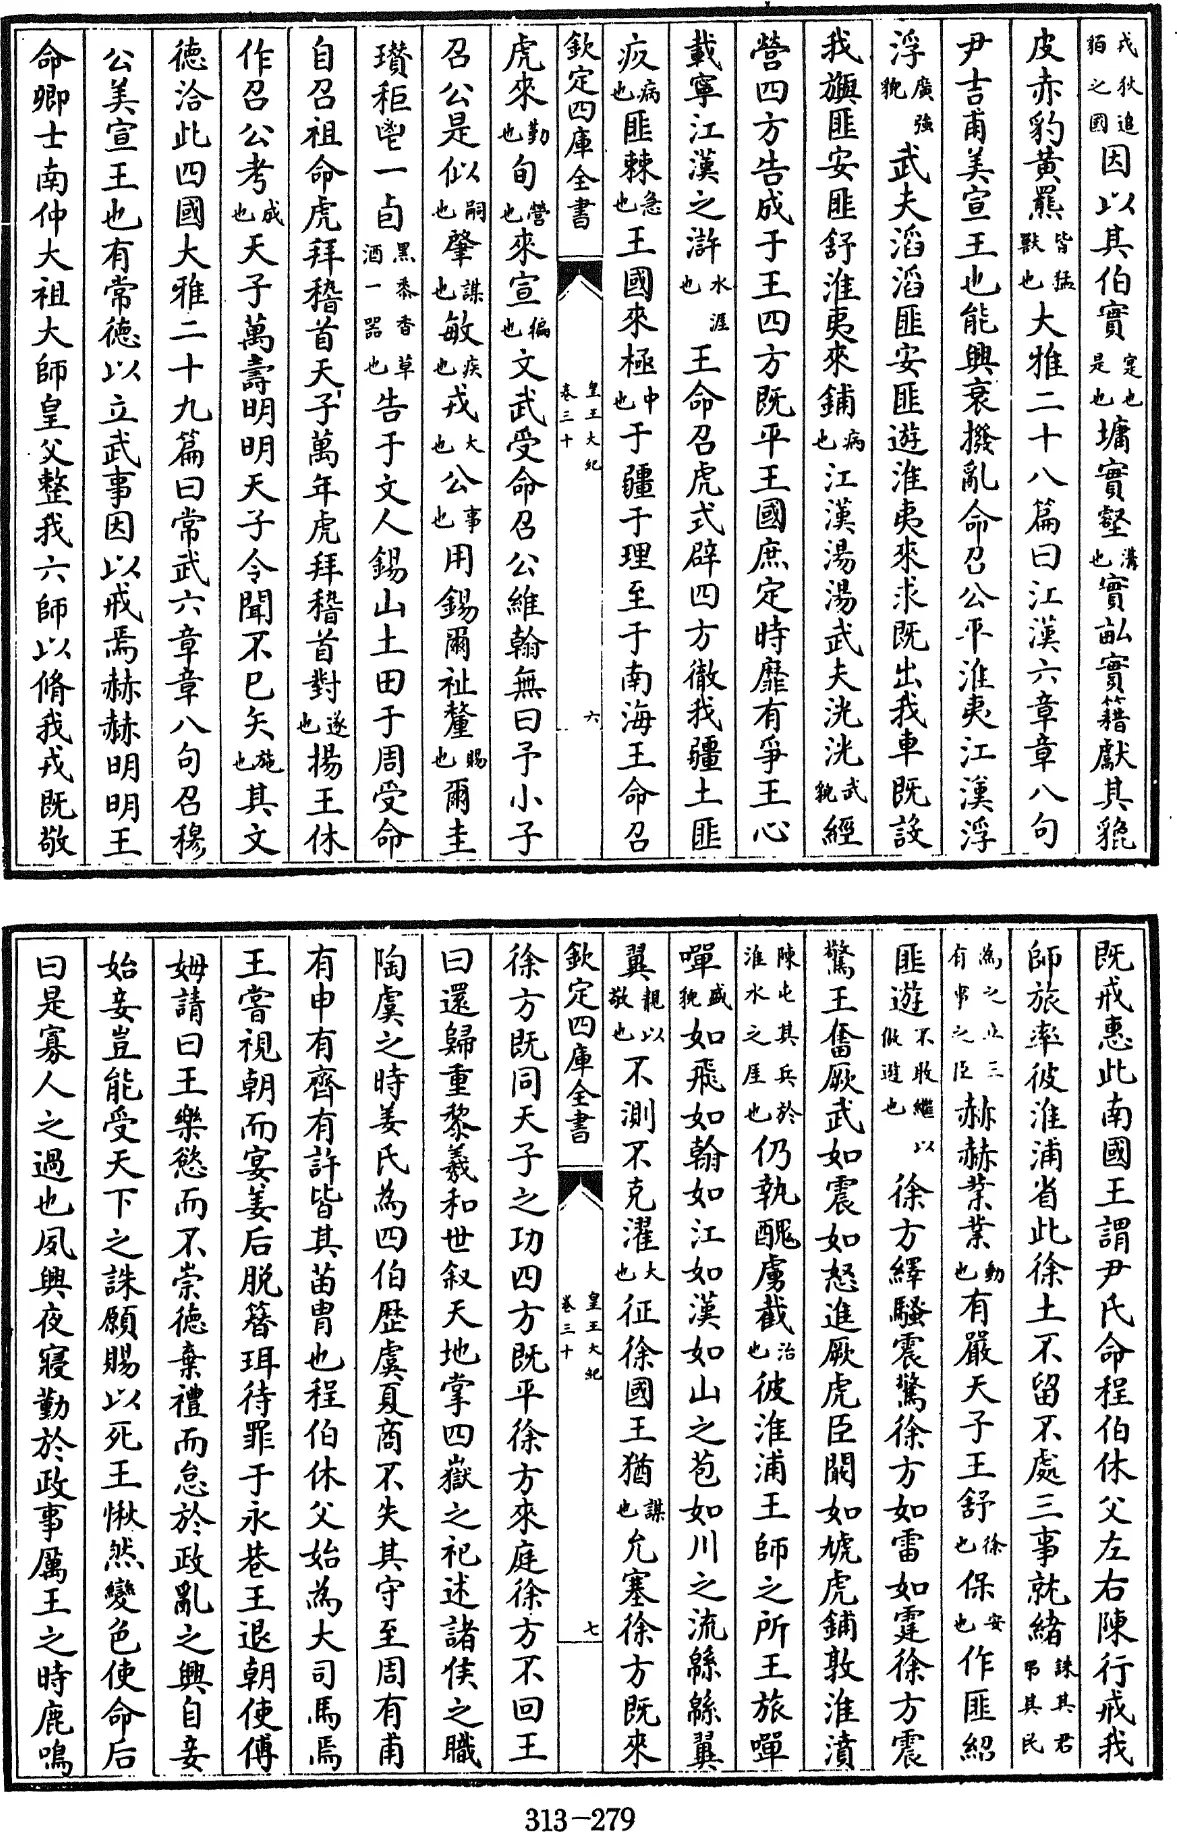 戎狄追貊之國因以其伯實寔也是也墉實壑溝也實畝實籍獻其貔
皮赤豹黄羆皆猛獸也大雅二十八篇曰江漢六章章八句
尹吉甫美宣王也能興衰撥亂命召公平淮夷江漢浮
浮廣強貌武夫滔滔匪安匪遊淮夷來求既出我車既設
我旟匪安匪舒淮夷來鋪病也江漢湯湯武夫洸洸武貌經
營四方告成于王四方既平王國庶定時靡有爭王心
載寧江漢之滸水涯也王命召虎式辟四方徹我疆土匪
疚病也匪棘急也王國來極中也于疆于理至于南海王命召
欽定四庫全書 皇王大紀卷三十 六
虎來勤也旬營也來宣徧也文武受命召公維翰無曰予小子
召公是似嗣也肇謀也敏疾也戎大也公事也用錫爾祉釐賜也爾圭
瓚秬鬯一卣黑黍香草酒一器也告于文人錫山土田于周受命
自召祖命虎拜稽首天子萬年虎拜稽首對遂也揚王休
作召公考成也天子萬壽明明天子令聞不已矢施也其文
德洽此四國大雅二十九篇曰常武六章章八句召穆
公美宣王也有常德以立武事因以戒焉赫赫明明王
命卿士南仲大祖大師皇父整我六師以脩我戎既敬
既戒惠此南國王謂尹氏命程伯休父左右陳行戒我
師旅率彼淮浦省此徐土不留不處三事就緒誅其君弔其民
為之立三有事之臣赫赫業業動也有嚴天子王舒徐也保安也作匪紹
匪遊不敢繼以傲遊也徐方繹騷震驚徐方如雷如霆徐方震
驚王奮厥武如震如怒進厥虎臣闞如虓虎鋪敦淮濆
陳屯其兵於淮水之厓也仍執醜虜截治也彼淮浦王師之所王旅嘽
嘽盛貌如飛如翰如江如漢如山之苞如川之流緜緜翼
翼親以敬也不測不克濯大也征徐國王猶謀也允塞徐方既來
欽定四庫全書 皇王大紀卷三十 七
徐方既同天子之功四方既平徐方來庭徐方不回王
曰還歸重黎羲和世叙天地掌四嶽之祀述諸侯之職
陶虞之時姜氏為四伯歷虞夏商不失其守至周有甫
有申有齊有許皆其苗胄也程伯休父始為大司馬焉
王嘗視朝而宴姜后脱簪珥待罪于永巷王退朝使傅
姆請曰王樂慾而不崇德棄禮而怠於政亂之興自妾
始妾豈能受天下之誅願賜以死王愀然變色使命后
曰是寡人之過也夙興夜寢勤於政事厲王之時鹿鳴
313-279